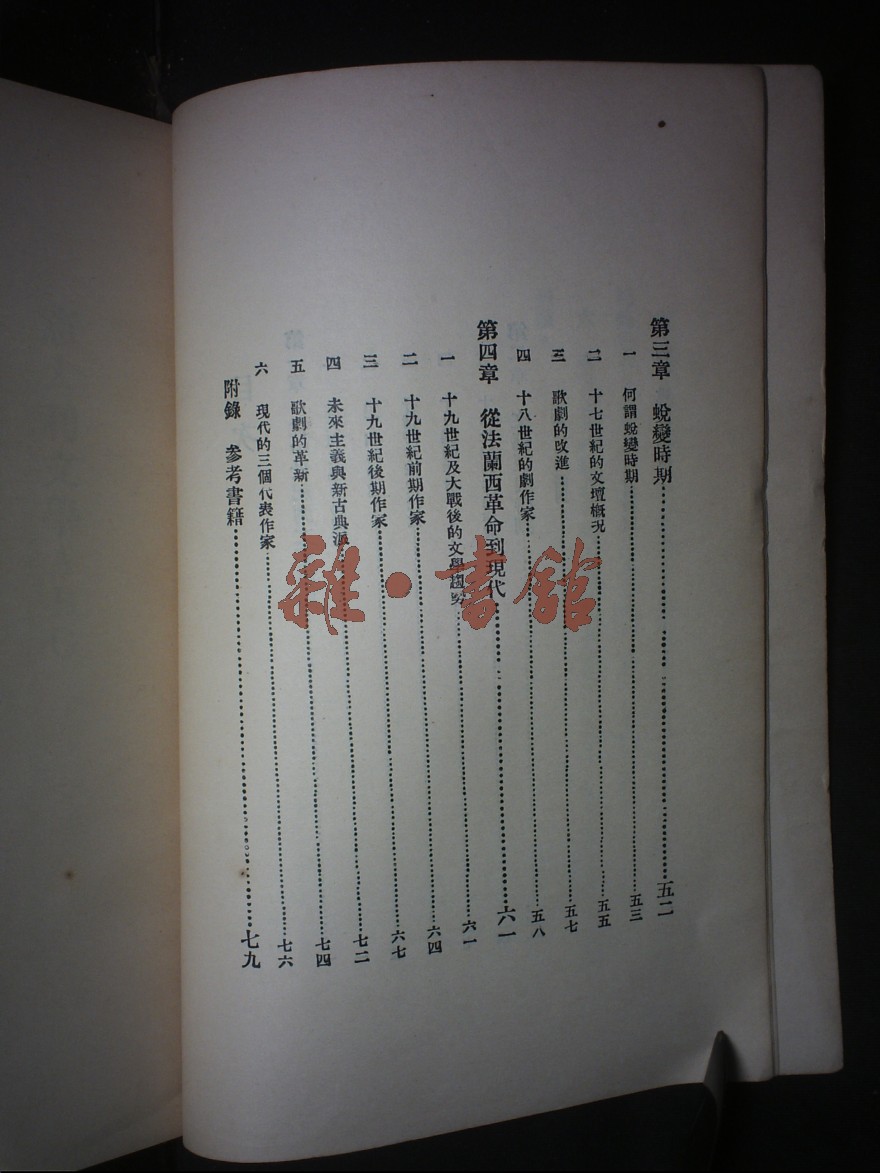 第三章 蛻變時期……五二
一 何謂蛻變時期……五三
二 十七世紀的文壇概況……五五
三 歌劇的改進……五七
四 十八世紀的劇作家……五八
第四章 從法蘭西革命到現代……六一
一 十九世紀及大戰後的文學趨勢……六一
二 十九世紀前期作家……六四
三 十九世紀後期作家……六七
四 未來主義與新古典派……七二
五 歌劇的革新……七四
六 現代的三個代表作家……七六
附錄 參考書籍……七九
雜·書館